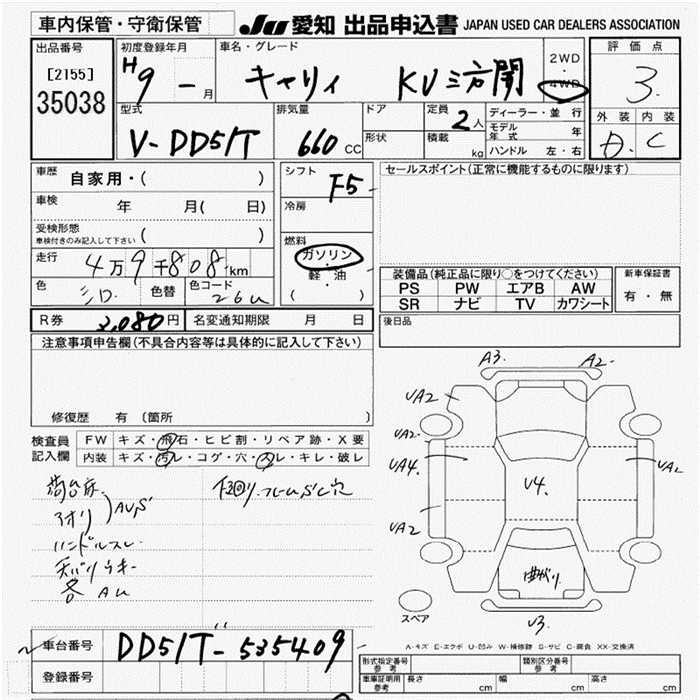 車内保管・守衛保管
JU 愛知 出品申込書 JAPAN USED CAR DEALERS ASSOCIATION
出品番号
[2155]
35038
初度登録年月
H9 - 月
車名・グレード
キャリィ KU 三方開
2WD
・
4WD
評価点
3.
外装 内装
D. C
型式
V-DD51T
排気量
660 CC
ドア
形状
定員
2人
積載 kg
ディーラー・並行
モデル年式 年
ハンドル 左・右
車歴
自家用・( )
車検 年 月( 日)
受検形態
車検付きのみ記入して下さい ( )
走行 4万9千808km
色 シロ. 色替 色コード 26U
シフト F5
冷房
燃料
ガソリン
・
軽・油
( )
セールスポイント(正常に機能するものに限ります)
装備品(純正品に限り○をつけてください)
PS PW エアB AW
SR ナビ TV カワシート
新車保証書
有・無
R券 2,080円 名変通知期限 月 日
後日品
注意事項申告欄(不具合内容等は具体的に記入して下さい)
修復歴 有 〔箇所
検査員記入欄
FW キズ・飛石・ヒビ割・リペア跡・X要
内装 キズ・汚レ・コゲ・穴・スレ・キレ・破レ
荷台麻.
アオリ AU,S
ハンドルスレ
天バリウキー
各 AU
下回り.フレームS'C穴
A3. A2.
UA2
UA2.
UA4.
UA2
UA2
U4.
曲がり.
U3.
スペア
A-キズ E-エクボ U-凹み W-補修跡 S-サビ C-腐食 XX-交換済
車台番号 DD51T-535409
登録番号
形式指定番号 参考
類別区分番号 参考
車庫証明用 参考 長さ cm 幅 cm 高さ cm